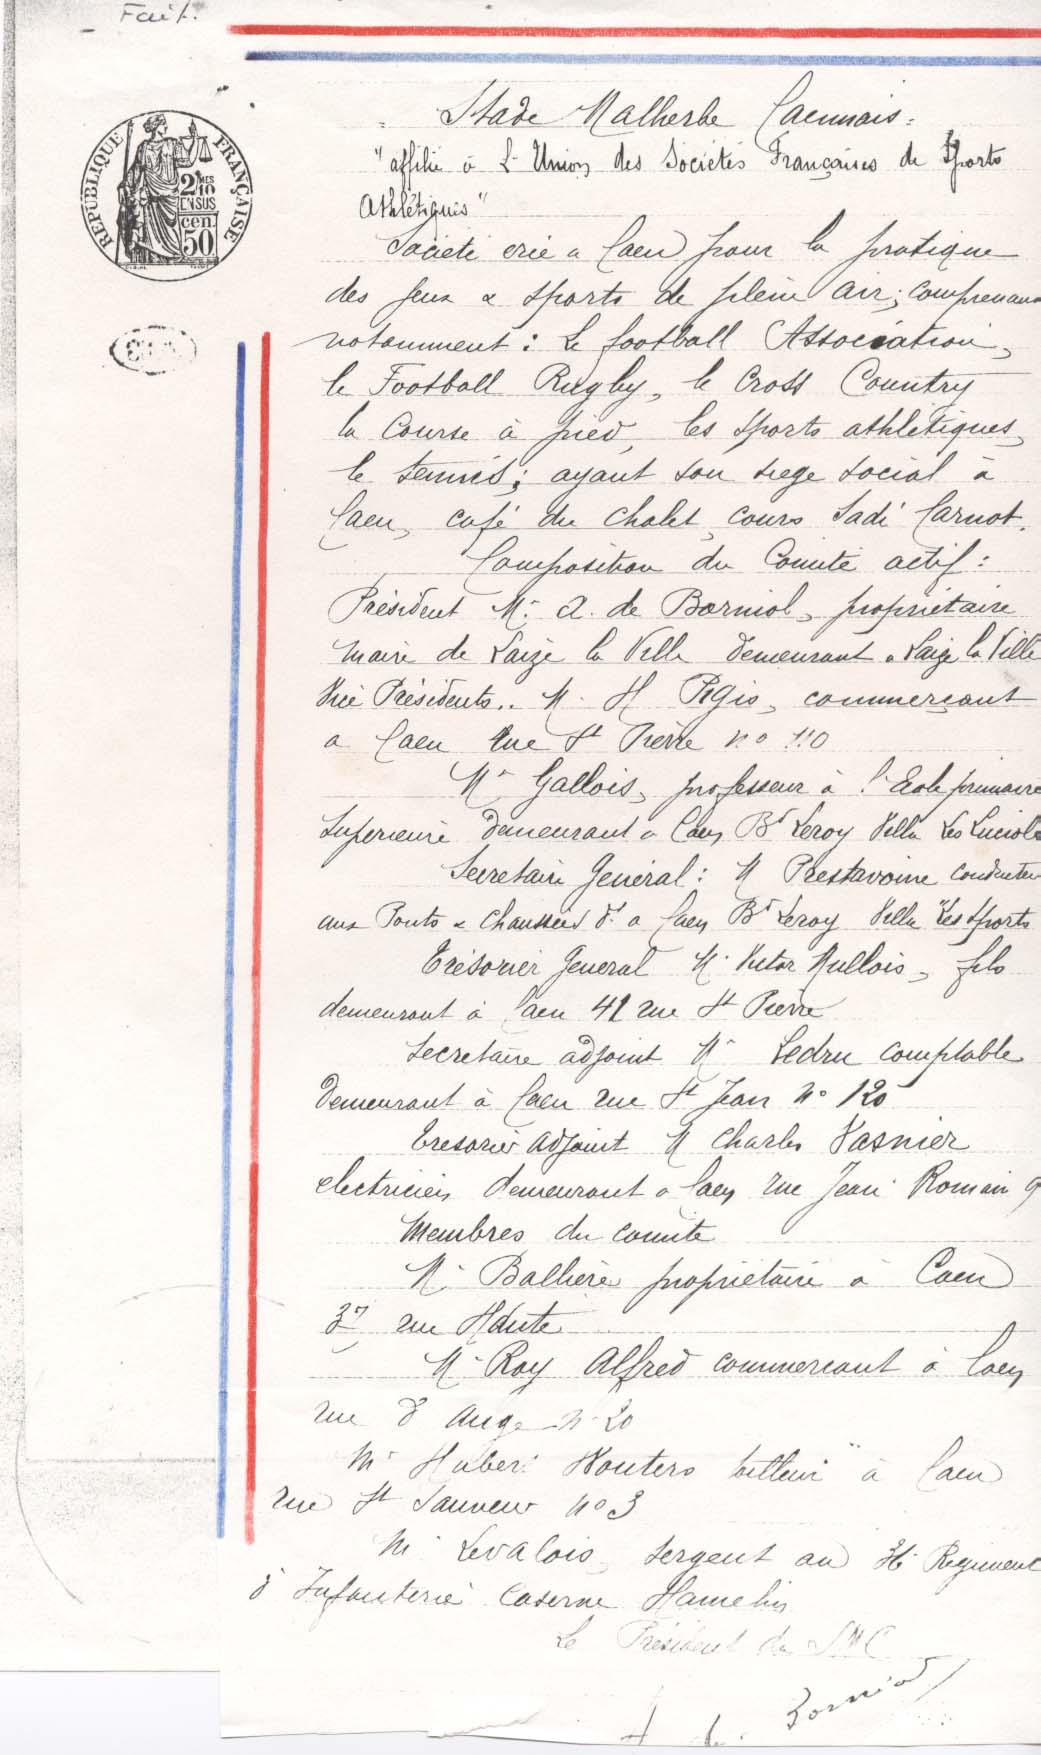 Fait.
RÉPUBLIQUE FRANÇAISE
2/10 MES
EN SUS
cen.
50
Stade Malherbe Caennais.
"affilié à L'Union des Sociétés Françaises de Sports
Athlétiques"
Société créé a Caen pour la pratique
des jeux & sports de plein air; comprenant
notamment: Le football Association,
le Football Rugby, le Cross Country
la Course à pied, les sports athlétiques,
le tennis; ayant son siege social à
Caen, café du Chalet, cours Sadi Carnot.
Composition du Comité actif:
Président Mr. A. de Borniol, propriétaire
maire de Laize la Ville demeurant a Laize la Ville
Vice Présidents.. M. H Régis, commerçant
a Caen Rue St Pierre no 110
Mr Gallois, professeur à l'Ecole primaire
Superieure demeurant a Caen Bd Leroy Villa Les Luciole
Secretaire Général: M Prestavoine conducteur
aux Ponts & Chaussées dt a Caen Bd Leroy Villa "Les Sports
Trésorier General Mr Victor Mullois, fils
demeurant à Caen 41 rue St Pierre
Secretaire adjoint Mr Ledru comptable
demeurant à Caen rue St Jean No 120
Tresorier adjoint M Charles Vasnier
electricien demeurant a Caen rue Jean Romain 9
Membres du comité
Mr Ballière propriétaire à Caen
37 rue Haute
Mr Roy Alfred commercant à Caen
rue d'Auge no 20
Mr Hubert Wouters tailleur à Caen
rue St Sauveur no 3
Mr Levalois, sergent au 36e Regiment
d'Infanterie Caserne Hamelin
Le Président du SMC
A de Borniol